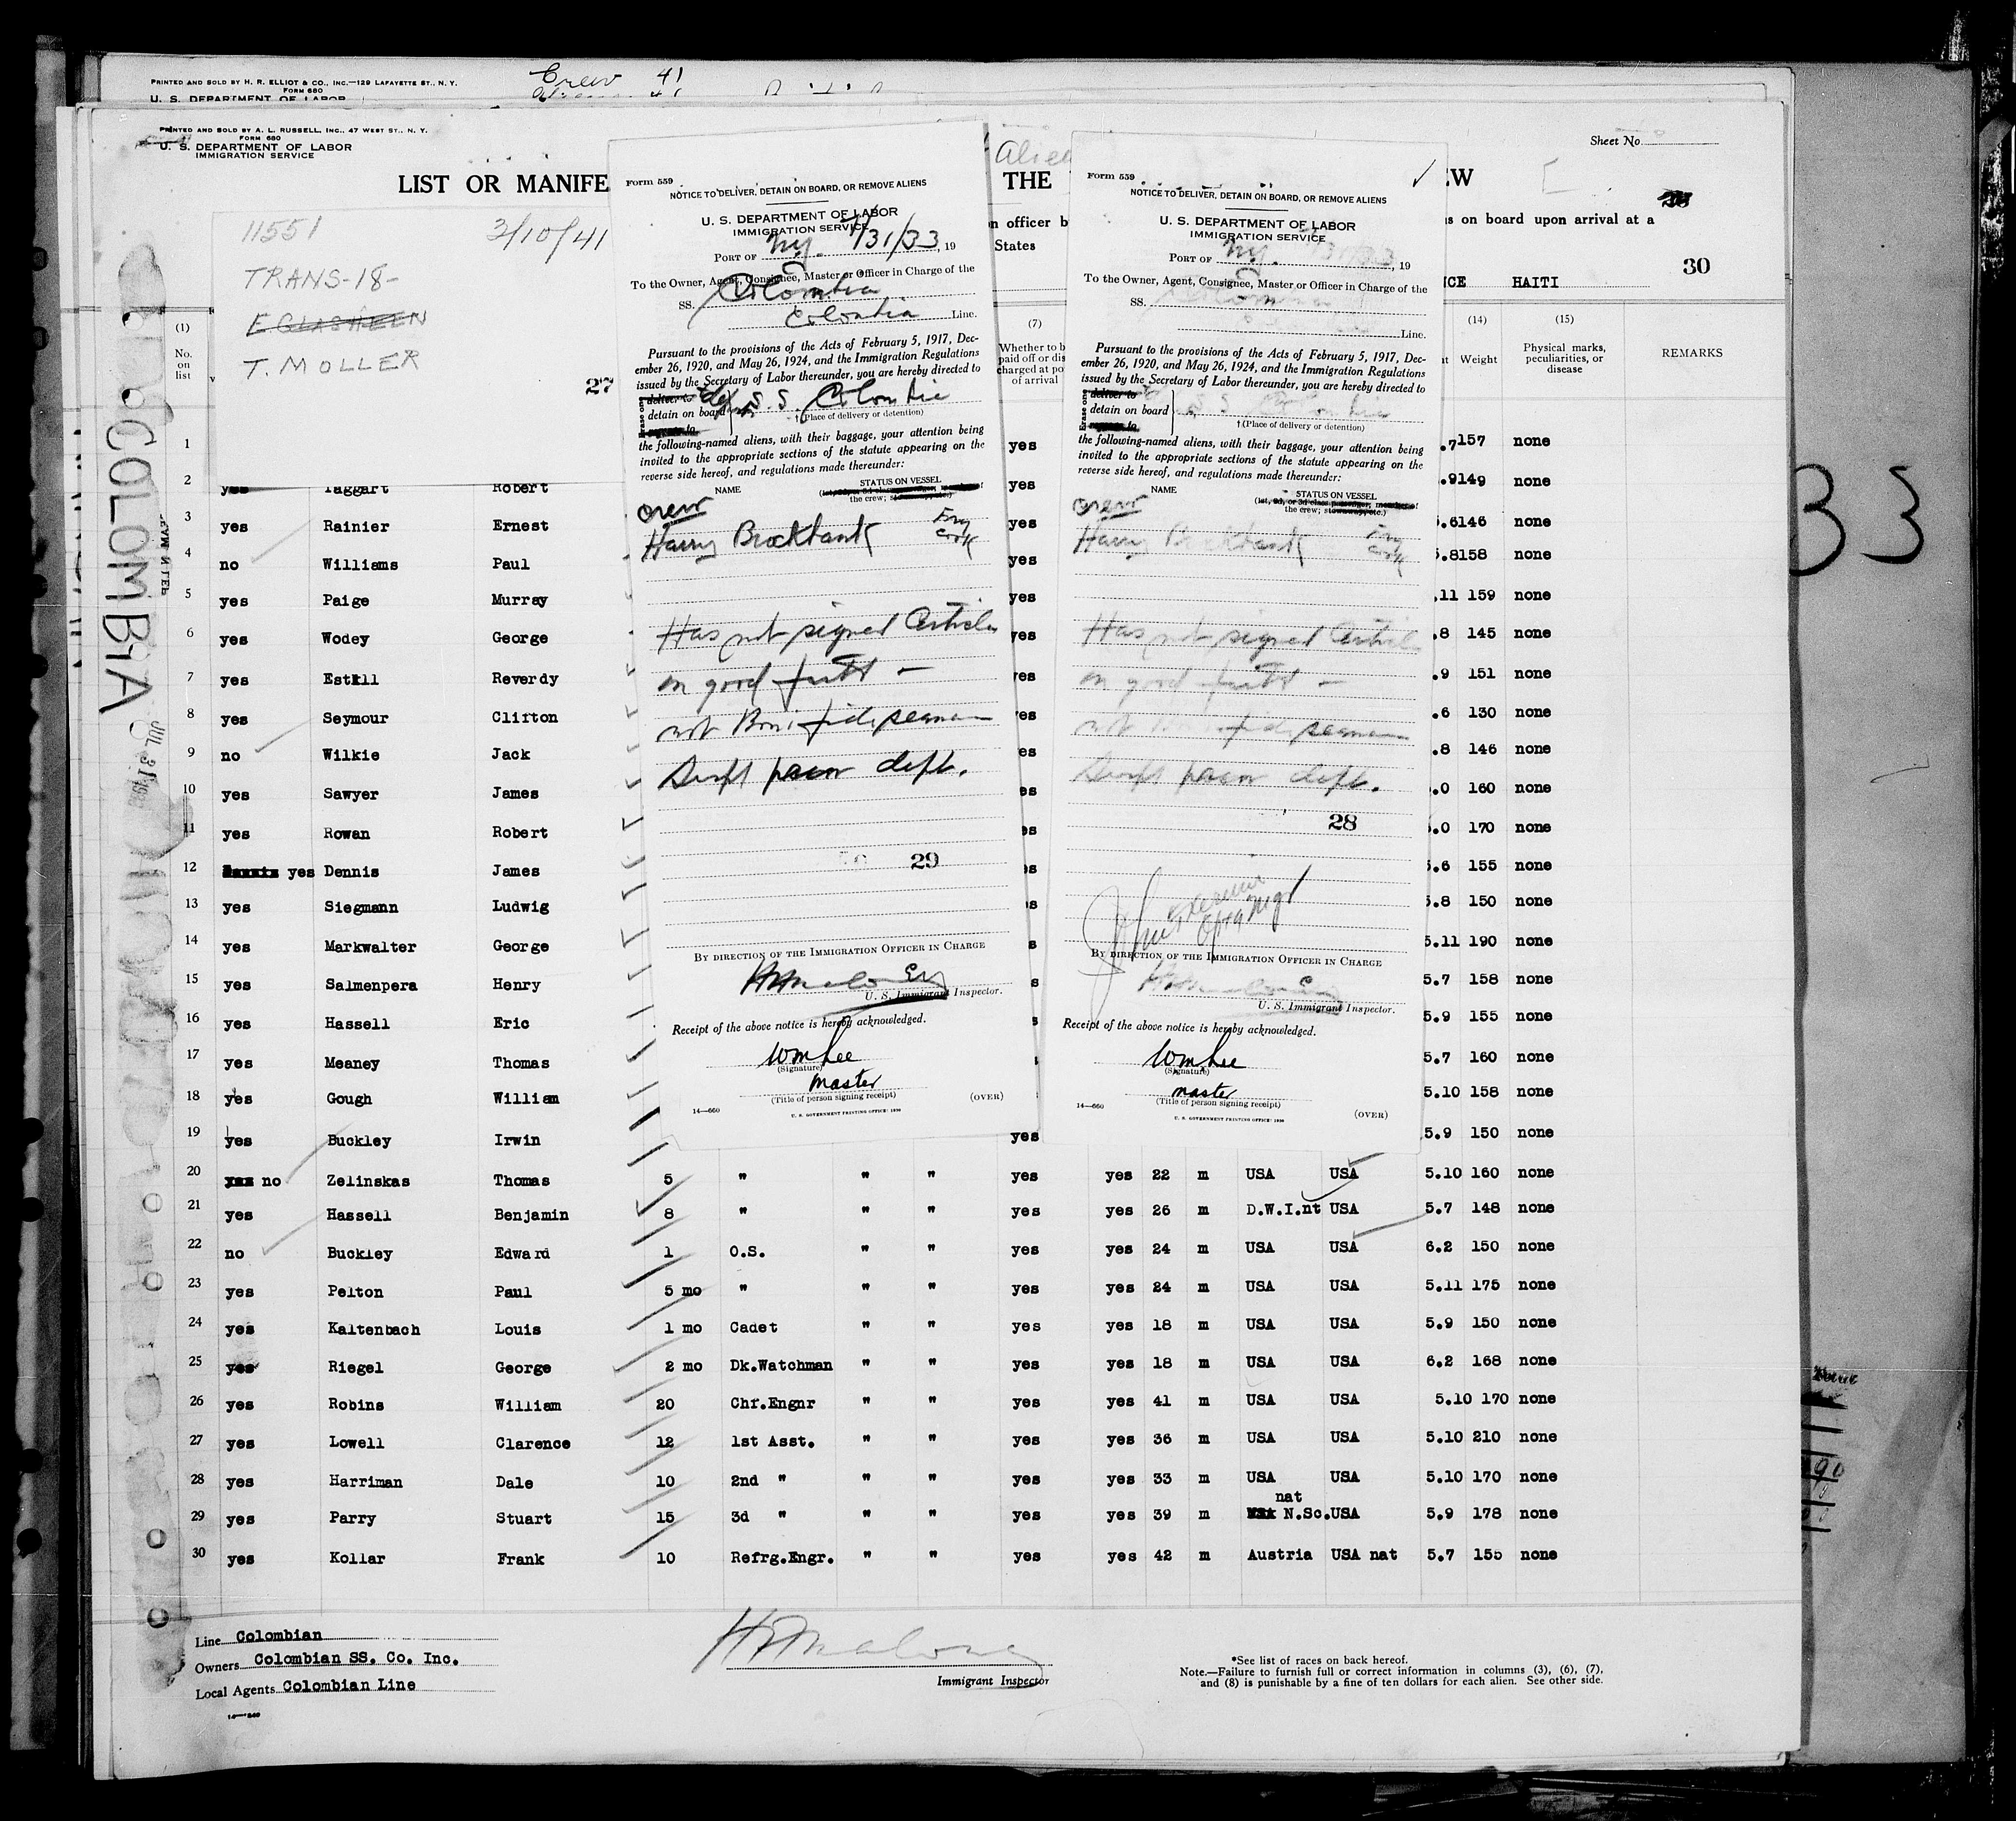 PRINTED AND SOLD BY H. R. ELLIOT & CO., INC.—129 LAFAYETTE ST., N. Y.
FORM 680
U. S. DEPARTMENT OF LABOR
Crew 41
PRINTED AND SOLD BY A. L. RUSSELL, INC., 47 WEST ST., N. Y.
FORM 680
U. S. DEPARTMENT OF LABOR
IMMIGRATION SERVICE
Sheet No.
LIST OR MANIFE
THE
EW
n officer b
s on board upon arrival at a
States
HAITI
30
11551 3/10/41
TRANS-18-
T. MOLLER
27
COLOMBIA
JUL 31
33
(1)
No.
on
list
(7)
Whether to b
paid off or dis
charged at po
of arrival
(14)
Weight
(15)
Physical marks,
peculiarities, or
disease
REMARKS
Form 559
NOTICE TO DELIVER, DETAIN ON BOARD, OR REMOVE ALIENS
U. S. DEPARTMENT OF LABOR
IMMIGRATION SERVICE
PORT OF N.Y. 7/31/33, 19
To the Owner, Agent, Consignee, Master or Officer in Charge of the
SS. Colombia
Colombia Line.
Pursuant to the provisions of the Acts of February 5, 1917, Dec-
ember 26, 1920, and May 26, 1924, and the Immigration Regulations
issued by the Secretary of Labor thereunder, you are hereby directed to
Erase one
deliver to
detain on board
S S Colombia
†(Place of delivery or detention)
the following-named aliens, with their baggage, your attention being
invited to the appropriate sections of the statute appearing on the
reverse side hereof, and regulations made thereunder:
NAME STATUS ON VESSEL
the crew;
crew
Harry Brockbank
Has not signed Articles
in good faith —
not Bonifide seaman
dept.
29
BY DIRECTION OF THE IMMIGRATION OFFICER IN CHARGE
U. S. Immigrant Inspector.
Receipt of the above notice is hereby acknowledged.
Wm Lee
(Signature)
master
(Title of person signing receipt)
14—660 (OVER)
U. S. GOVERNMENT PRINTING OFFICE: 1930
Form 559
NOTICE TO DELIVER, DETAIN ON BOARD, OR REMOVE ALIENS
U. S. DEPARTMENT OF LABOR
IMMIGRATION SERVICE
PORT OF N.Y. , 19
To the Owner, Agent, Consignee, Master or Officer in Charge of the
SS.
Line.
Pursuant to the provisions of the Acts of February 5, 1917, Dec-
ember 26, 1920, and May 26, 1924, and the Immigration Regulations
issued by the Secretary of Labor thereunder, you are hereby directed to
Erase one
deliver to
detain on board
S S Colombia
†(Place of delivery or detention)
the following-named aliens, with their baggage, your attention being
invited to the appropriate sections of the statute appearing on the
reverse side hereof, and regulations made thereunder:
NAME STATUS ON VESSEL
the crew;
crew
Harry Brockbank
Has not signed
in good faith —
not seaman
dept.
28
BY DIRECTION OF THE IMMIGRATION OFFICER IN CHARGE
U. S. Immigrant Inspector.
Receipt of the above notice is hereby acknowledged.
Wm Lee
(Signature)
master
(Title of person signing receipt)
14—660 (OVER)
U. S. GOVERNMENT PRINTING OFFICE: 1930
1 yes .7 157 none
2 yes Taggart Robert yes .9 149 none
3 yes Rainier Ernest yes .6 146 none
4 no Williams Paul yes 5.8 158 none
5 yes Paige Murray yes .11 159 none
6 yes Wodey George yes .8 145 none
7 yes Estill Reverdy yes .9 151 none
8 yes Seymour Clifton es .6 130 none
9 no Wilkie Jack es .8 146 none
10 yes Sawyer James es .0 160 none
11 yes Rowan Robert es .0 170 none
12 yes Dennis James s 5.6 155 none
13 yes Siegmann Ludwig s 5.8 150 none
14 yes Markwalter George s 5.11 190 none
15 yes Salmenpera Henry s 5.7 158 none
16 yes Hassell Eric s 5.9 155 none
17 yes Meaney Thomas 5.7 160 none
18 yes Gough William 5.10 158 none
19 yes Buckley Irwin yes 5.9 150 none
20 no Zelinskas Thomas 5 " " " yes yes 22 m USA USA 5.10 160 none
21 yes Hassell Benjamin 8 " " " yes yes 26 m D.W.I.nt USA 5.7 148 none
22 no Buckley Edward 1 O.S. " " yes yes 24 m USA USA 6.2 150 none
23 yes Pelton Paul 5 mo " " " yes yes 24 m USA USA 5.11 175 none
24 yes Kaltenbach Louis 1 mo Cadet " " yes yes 18 m USA USA 5.9 150 none
25 yes Riegel George 2 mo Dk.Watchman " " yes yes 18 m USA USA 6.2 168 none
26 yes Robins William 20 Chf.Engnr " " yes yes 41 m USA USA 5.10 170 none
27 yes Lowell Clarence 12 1st Asst. " " yes yes 36 m USA USA 5.10 210 none
28 yes Harriman Dale 10 2nd " " " yes yes 33 m USA USA 5.10 170 none
nat
29 yes Parry Stuart 15 3d " " " yes yes 39 m N.Sc. USA 5.9 178 none
30 yes Kollar Frank 10 Refrg.Engr. " " yes yes 42 m Austria USA nat 5.7 155 none
Line Colombian
Owners Colombian SS. Co. Inc.
Local Agents Colombian Line
Immigrant Inspector
*See list of races on back hereof.
Note.—Failure to furnish full or correct information in columns (3), (6), (7),
and (8) is punishable by a fine of ten dollars for each alien. See other side.